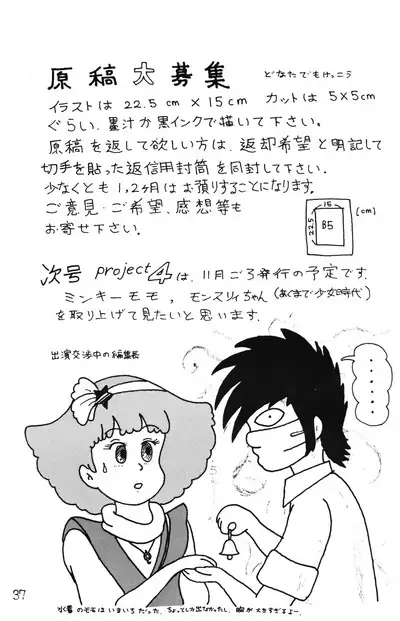 原稿大募集 どなたでもけっこう
イラストは 22.5cm×15cm カットは 5×5cm
ぐらい、墨汁か黒インクで描いて下さい。
原稿を返して欲しい方は、返却希望と明記して
切手を貼った返信用封筒を同封して下さい。
少なくとも1,2ヶ月はお預りすることになります。
ご意見・ご希望、感想等も
お寄せ下さい。
15 (cm)
22.5 B5
次号 project4は、11月ごろ発行の予定です。
ミンキーモモ, モンスリィちゃん(あくまで少女時代)
を取り上げて見たいと思います。
出演交渉中の編集長
・・・・・・
37
水着のモモはいまいちだった、ちょっとしか出なかったし、胸が大きすぎるよー。